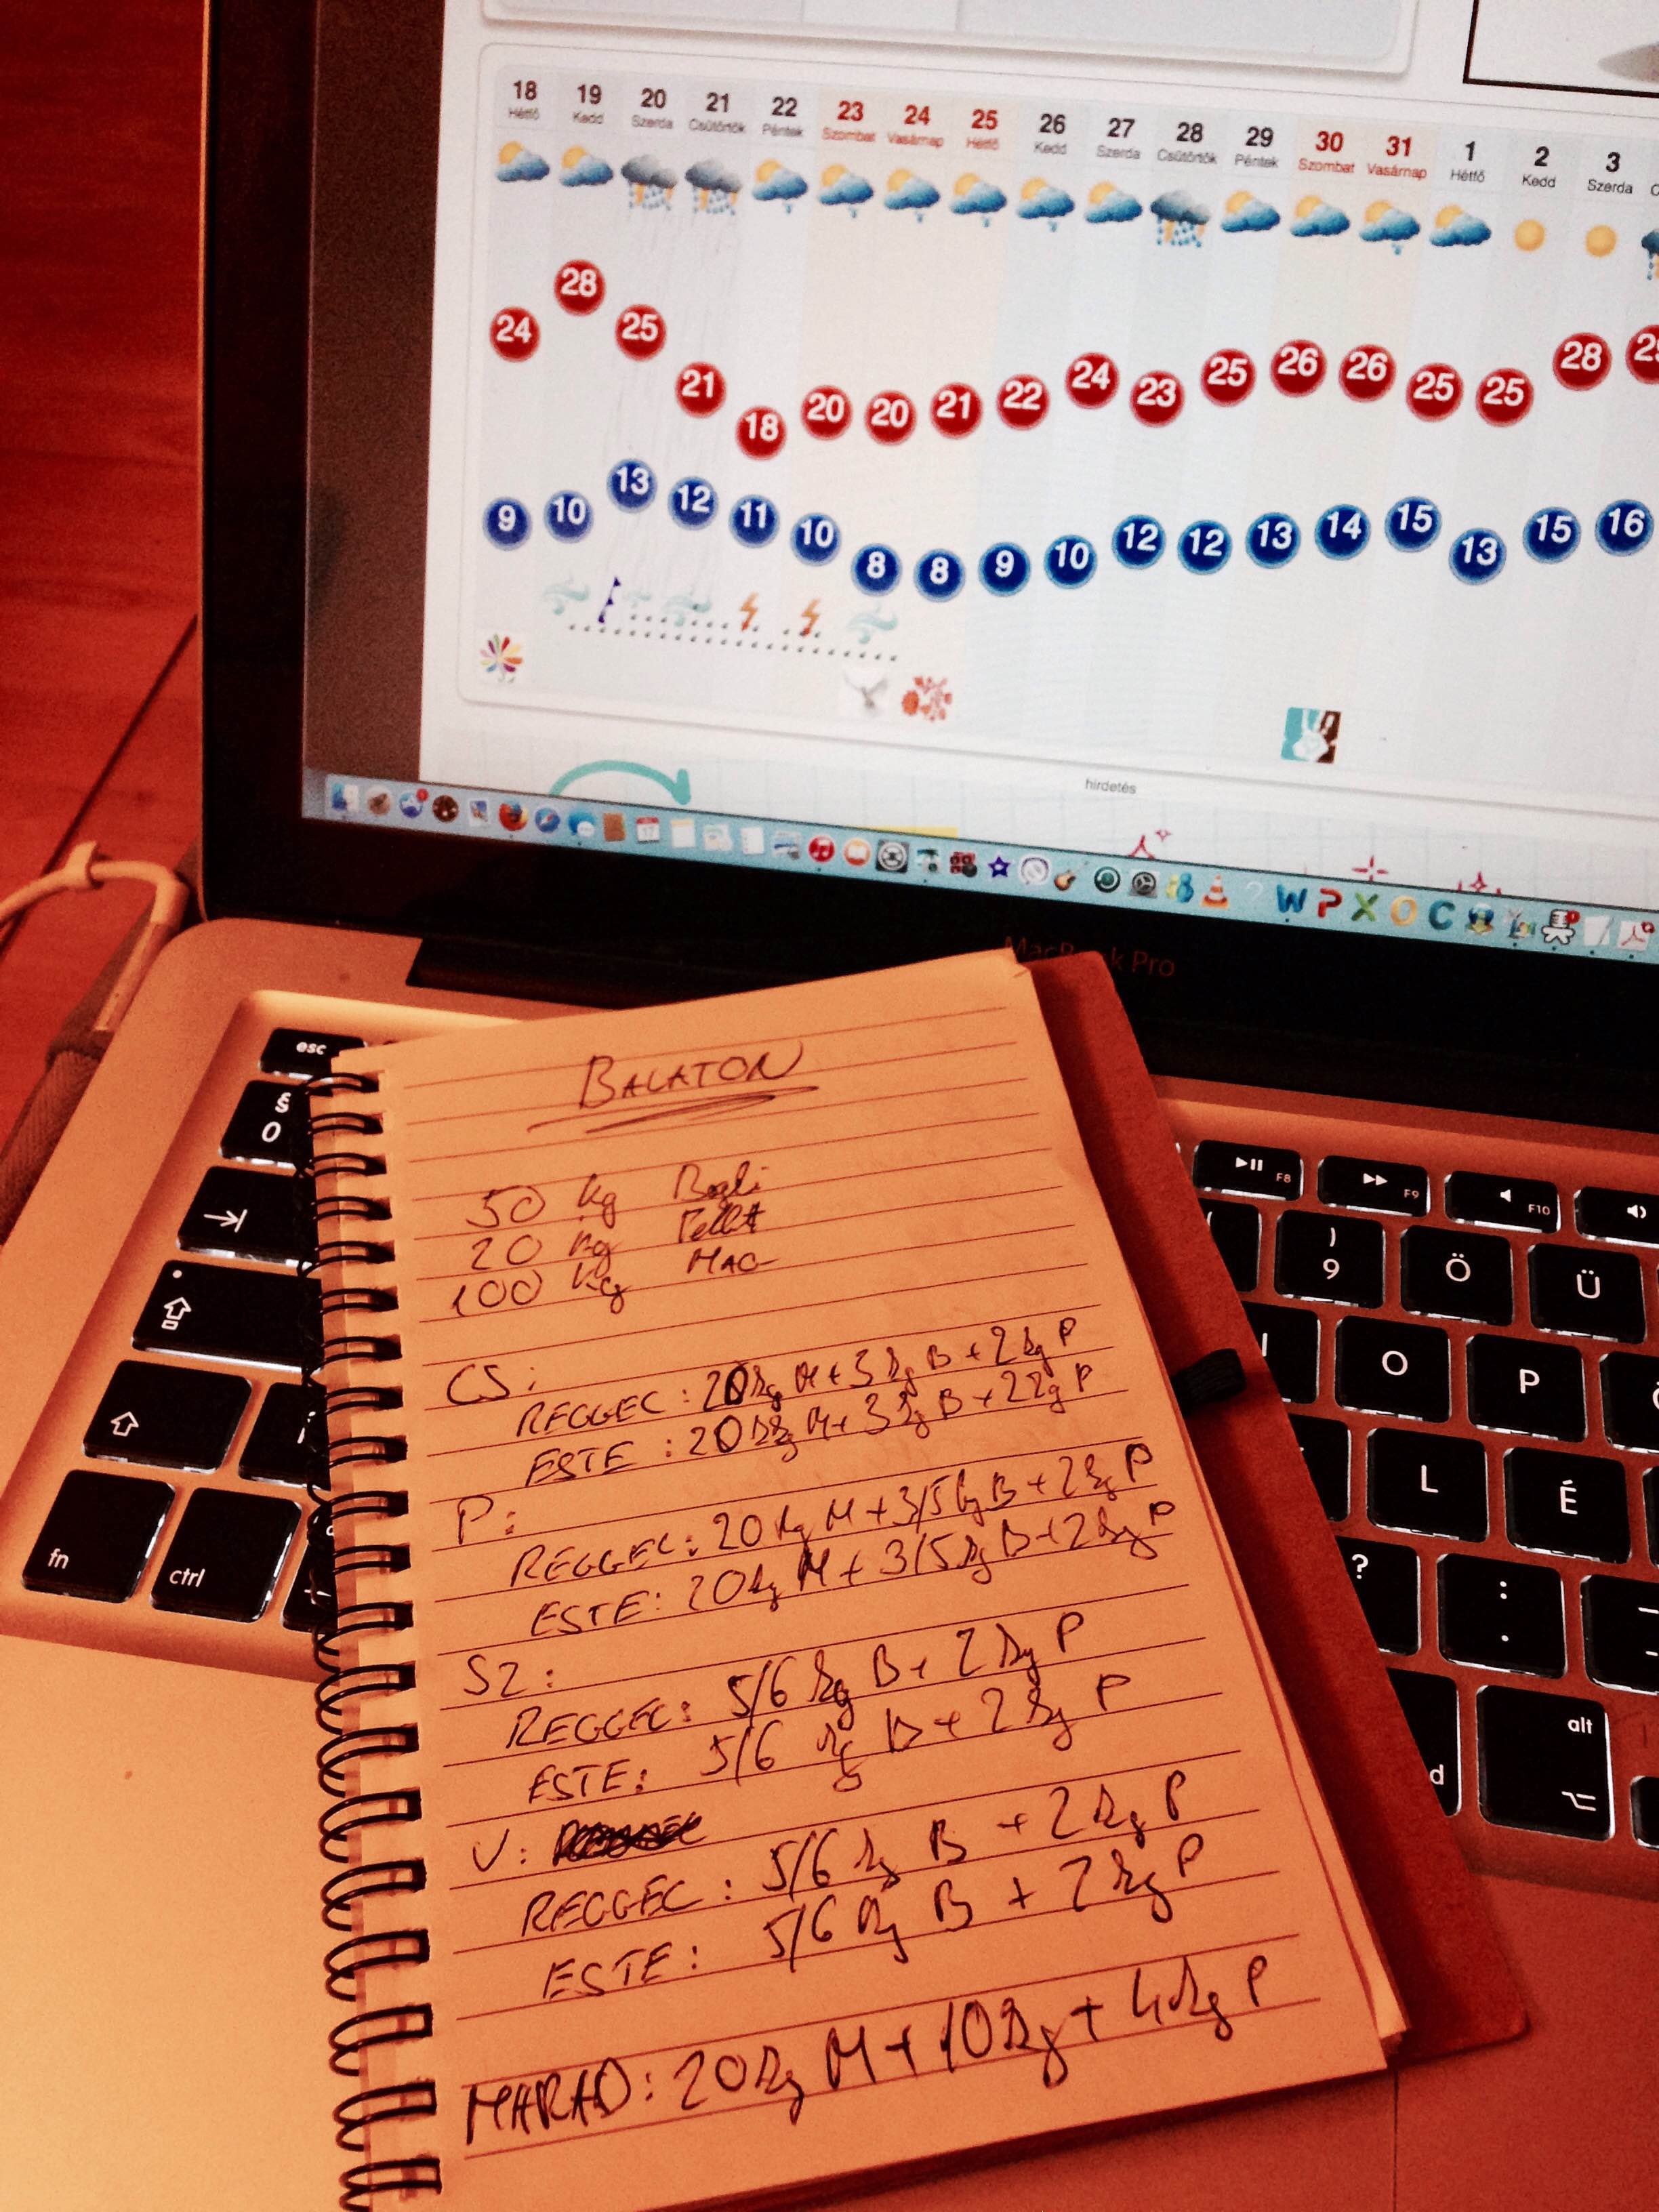 18 19 20 21 22 23 24 25 26 27 28 29 30 31 1 2 3
Hétfő Kedd Szerda Csütörtök Péntek Szombat Vasárnap Hétfő Kedd Szerda Csütörtök Péntek Szombat Vasárnap Hétfő Kedd Szerda
24 28 25 21 18 20 20 21 22 24 23 25 26 26 25 25 28
9 10 13 12 11 10 8 8 9 10 12 12 13 14 15 13 15 16
hirdetés
17
W P X O C
MacBook Pro
esc
§
0
fn
ctrl
F8
F9
F10
)
9
Ö
Ü
O
P
L
É
?
:
.
-
alt
d
BALATON
50 kg Bojli
20 kg Pellet
100 kg MAG
CS:
REGGEL: 20kg M+3kg B+2kg P
ESTE: 20kg M+3kg B+2kg P
P:
REGGEL: 20kg M+3/5kg B+2kg P
ESTE: 20kg M+3/5kg B+2kg P
SZ:
REGGEL: 5/6 kg B+2kg P
ESTE: 5/6 kg B+2kg P
V:
REGGEL: 5/6 kg B+2kg P
ESTE: 5/6 kg B+2kg P
MARAD: 20kg M+10kg+4kg P